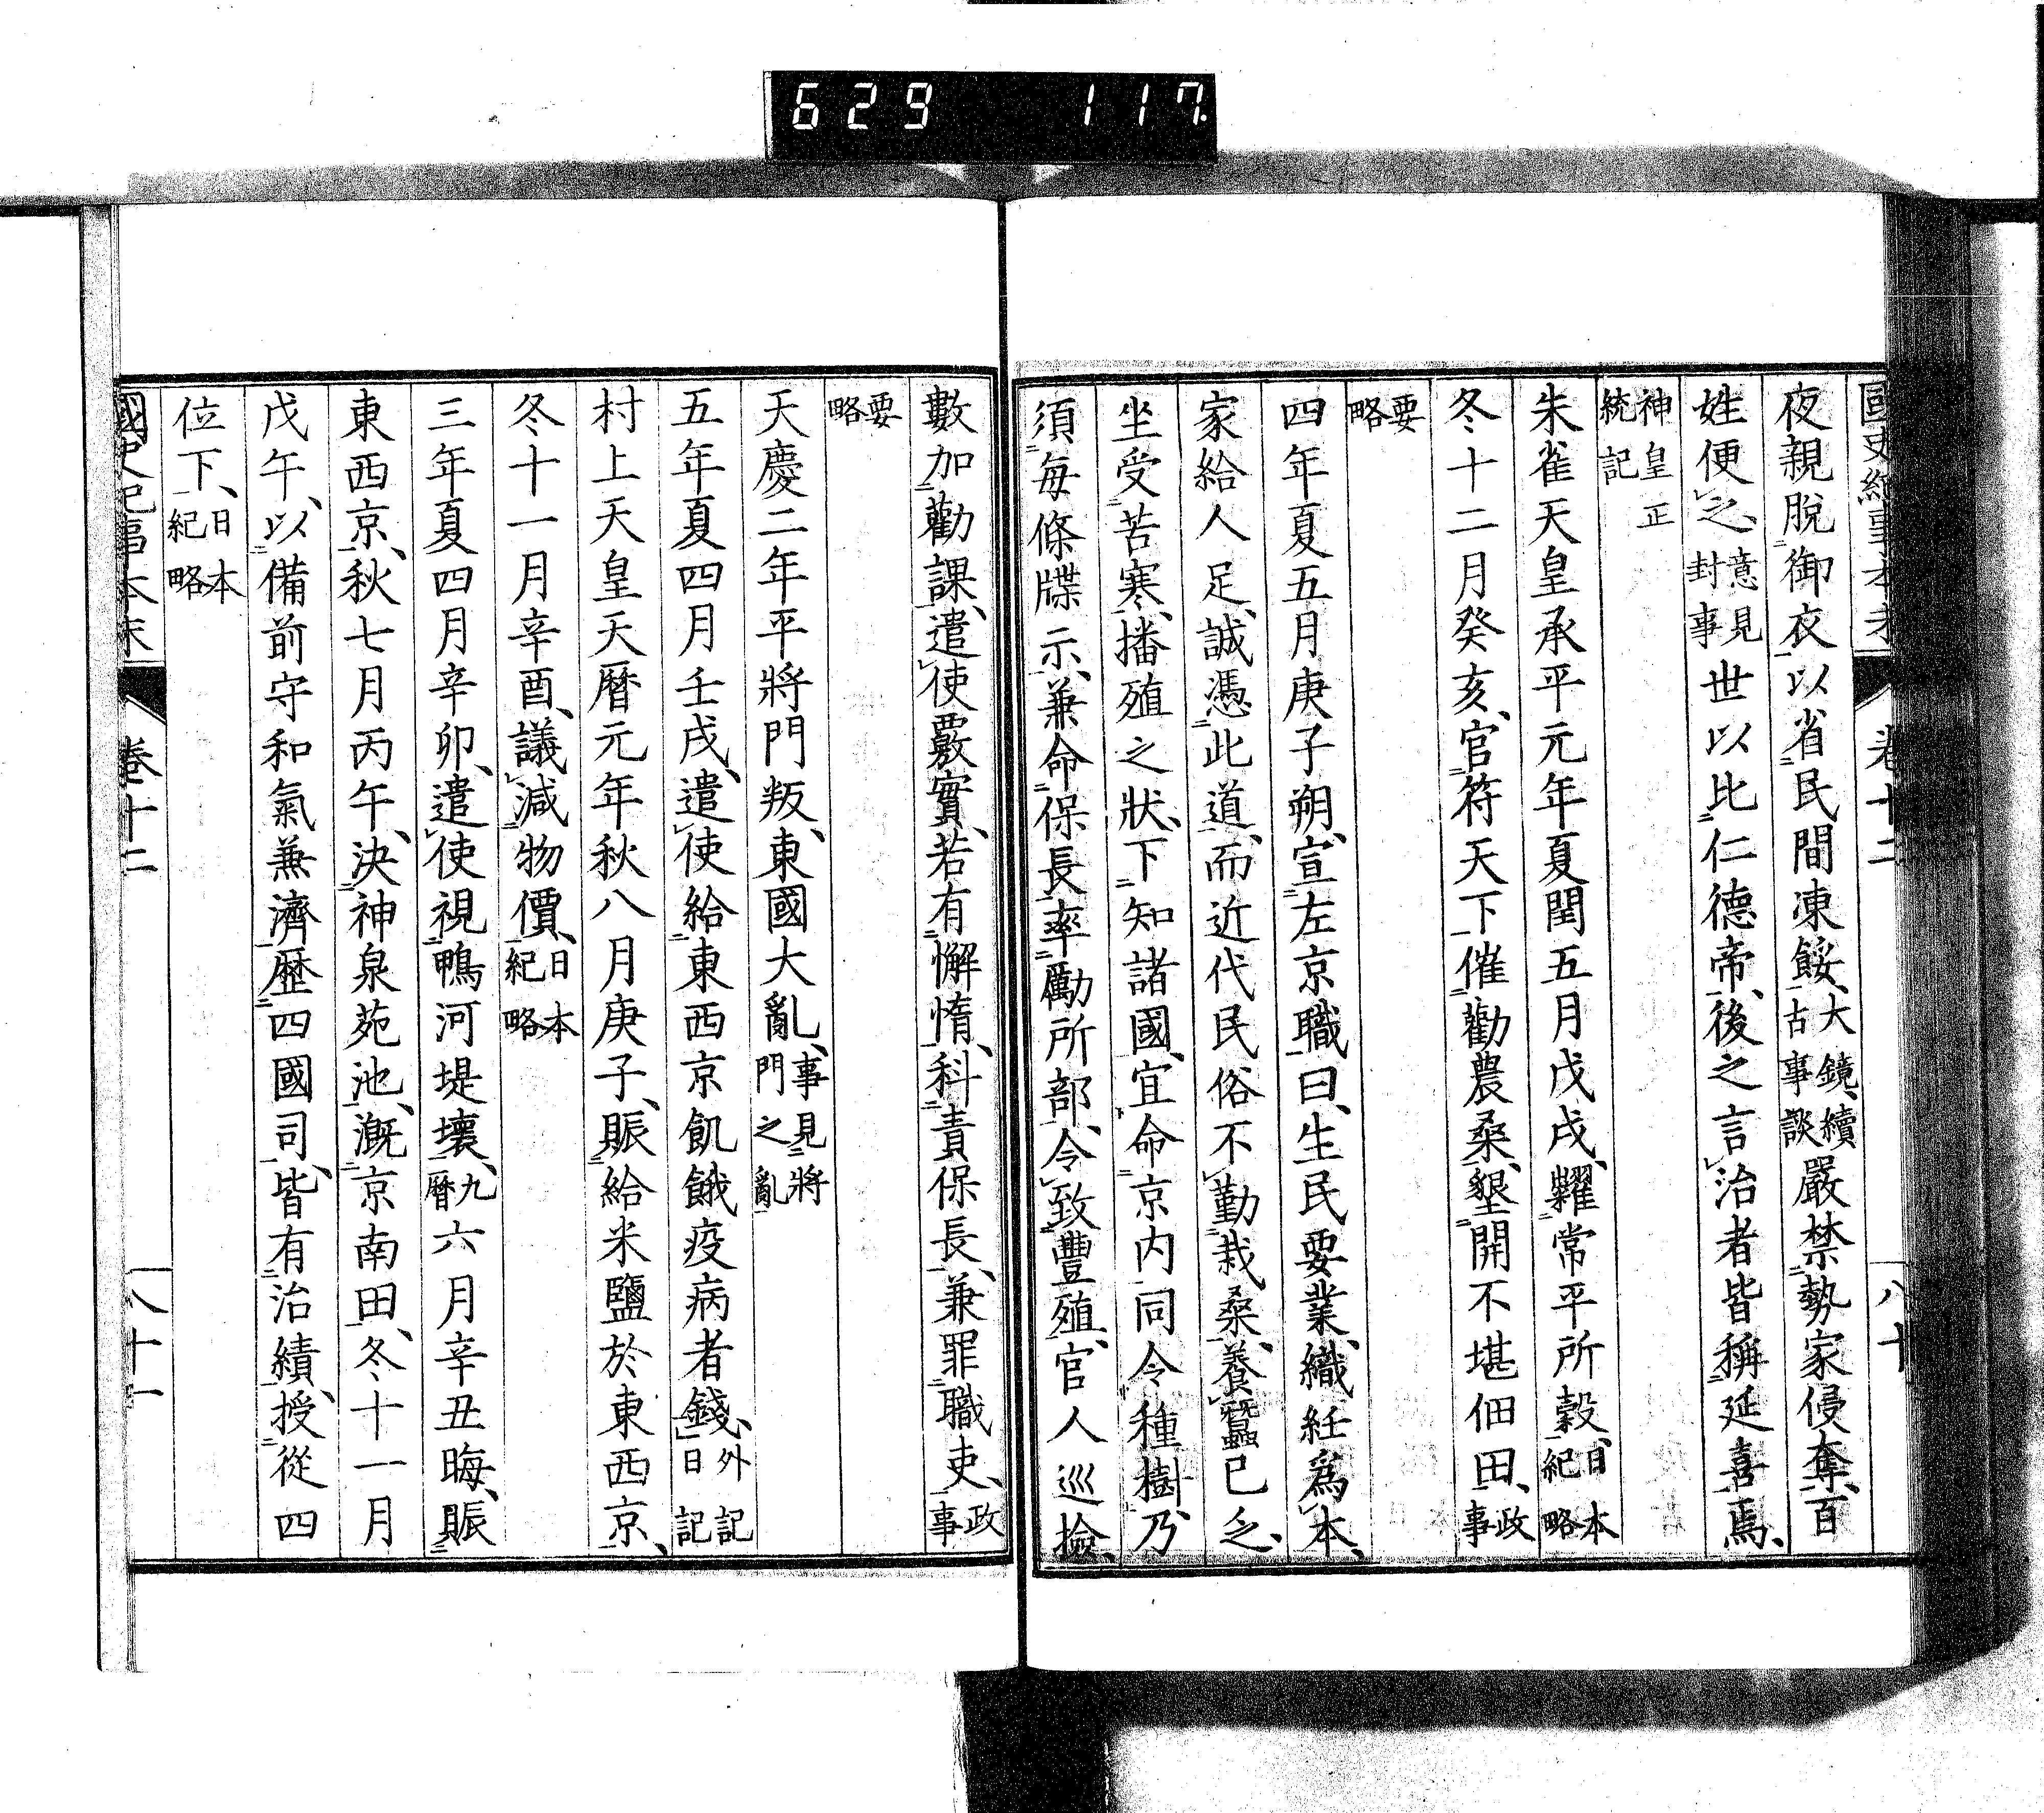 629 117
國史紀事本末 卷十二 八十
夜親脫御衣以省民間凍餒、大鏡、續古事談嚴禁勢家侵奪、百
姓便之、意見封事世以比仁德帝、後之言治者皆稱延喜焉、
神皇正統記
朱雀天皇承平元年夏閏五月戊戌、糶常平所穀、日本紀略
冬十二月癸亥、官符天下催勸農桑、墾開不堪佃田、政事
要略
四年夏五月庚子朔、宣左京職曰、生民要業、織紝爲本、
家給人足、誠憑此道、而近代民俗不勤栽桑、養蠶已乏、
坐受苦寒、播殖之狀、下知諸國、宜命京内同令種樹、乃
須每條牒示、兼命保長率勵所部、令致豐殖、官人巡撿、
數加勸課、遣使覈實、若有懈惰、科責保長、兼罪職吏、政事
要略
天慶二年平將門叛、東國大亂、事見將門之亂
五年夏四月壬戌、遣使給東西京飢餓疫病者錢、外記日記
村上天皇天曆元年秋八月庚子、賑給米鹽於東西京、
冬十一月辛酉、議減物價、日本紀略
三年夏四月辛卯、遣使視鴨河堤壞、九曆六月辛丑晦、賑
東西京、秋七月丙午、決神泉苑池、漑京南田、冬十一月
戊午、以備前守和氣兼濟歷四國司、皆有治績、授從四
位下、日本紀略
國史紀事本末 卷十二 八十一